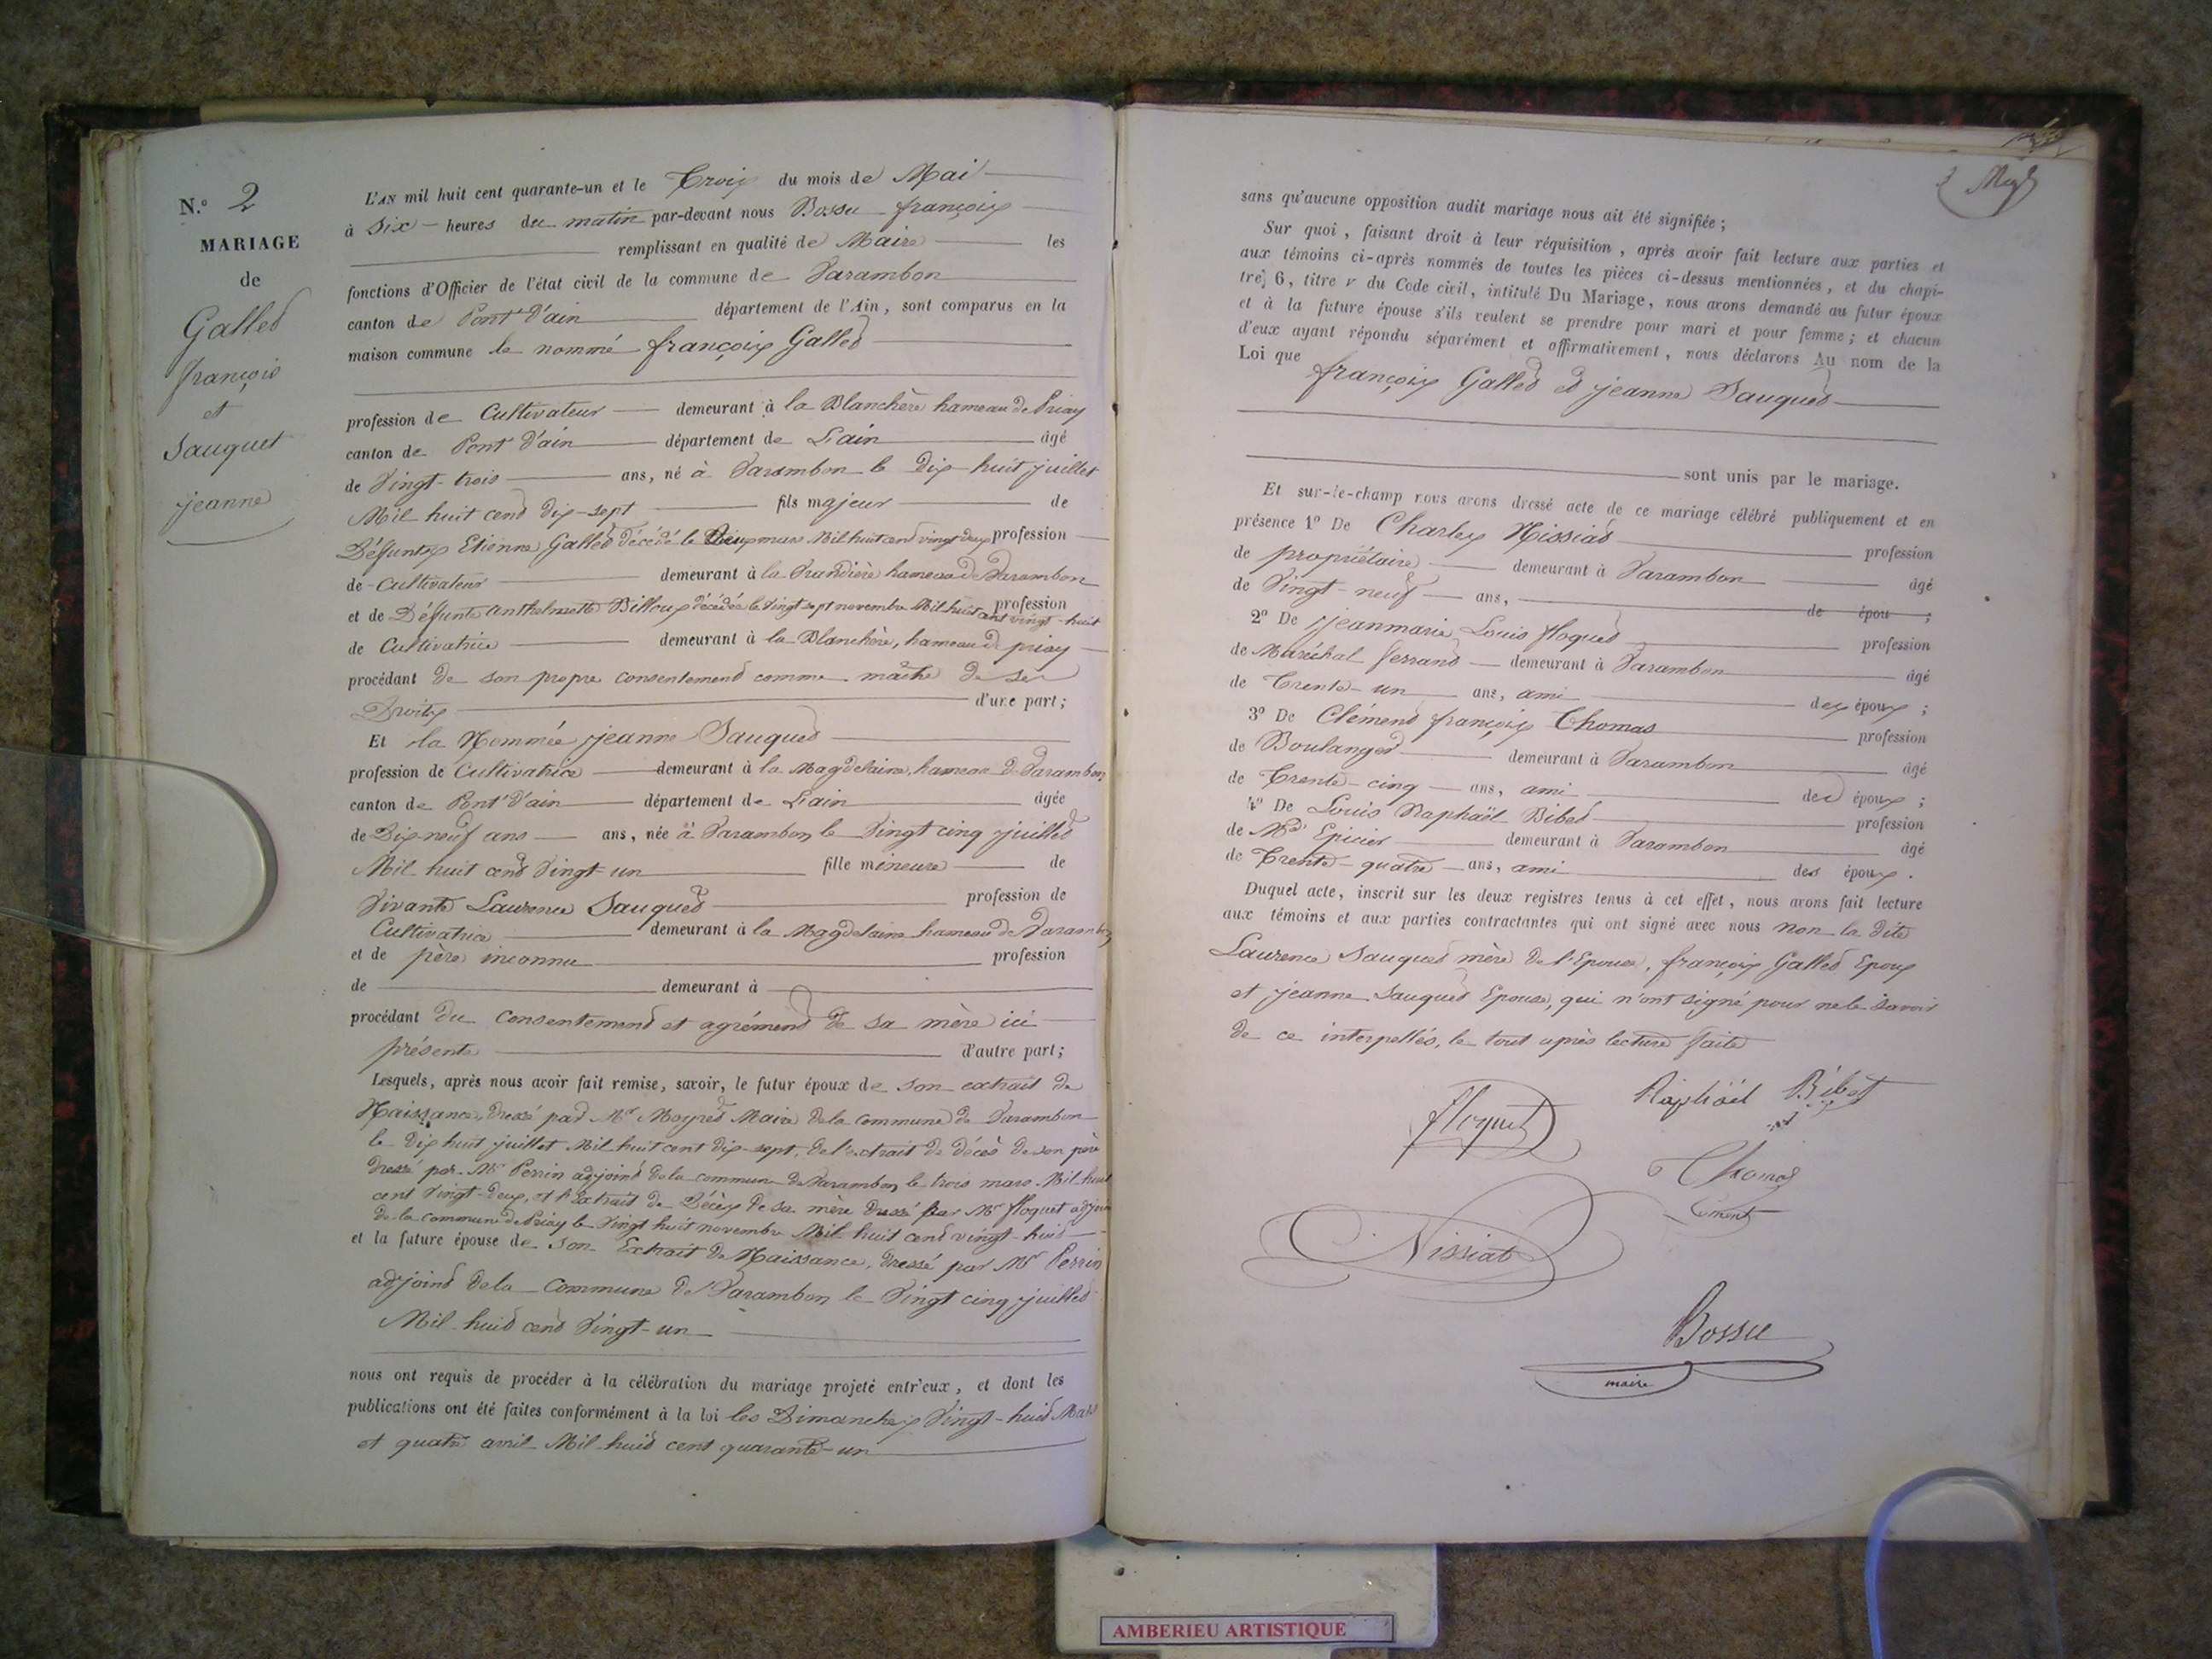 N.º 2
MARIAGE
de
Gallet
françois
et
Sauguet
jeanne
L'AN mil huit cent quarante-un et le Troix du mois de Mai
à Six heures du matin par-devant nous Bossu françoix
remplissant en qualité de Maire les
fonctions d'Officier de l'état civil de la commune de Varambon
canton de Pont d'ain département de l'Ain, sont comparus en la
maison commune le nommé françoix Gallet
profession de Cultivateur demeurant à la Blanchère hameau de Priay
canton de Pont d'ain département de L'ain âgé
de Vingt-trois ans, né à Varambon le Dix-huit juillet
Mil huit cent dix-sept fils majeur de
Défuntx Etienne Gallet décédé le Deux mars Mil huit cent vingt deux profession
de Cultivateur demeurant à la hameau de Varambon
et de Défunte Anthelmette Billoux décédée le Vingt sept novembre Mil huit cent vingt-huit profession
de Cultivatrice demeurant à la Blanchère, hameau de priay
procédant de son propre consentement comme maître de ses
Droitx d'une part;
Et la Nommée jeanne Sauguet
profession de Cultivatrice demeurant à la Magdelaine, hameau de Varambon
canton de Pont d'ain département de L'ain âgée
de Dix neuf ans ans, née à Varambon le Vingt cinq juillet
Mil huit cent Vingt-un fille mineure de
Vivante Laurence Sauguet profession de
Cultivatrice demeurant à la Magdelaine hameau de Varambon
et de père inconnu profession
de demeurant à
procédant du Consentement et agrément de sa mère ici
présente d'autre part;
Lesquels, après nous avoir fait remise, savoir, le futur époux de son extrait de
Naissance, dressé par Mr Maire de la Commune de Varambon
le Dix huit juillet Mil huit cent dix-sept, de l'extrait de décès de son père
dressé par Mr Perrin adjoint de la commune de Varambon le trois mars Mil huit
cent Vingt-deux, et l'Extrait de Décèx de sa mère dressé par Mr floquet adjoint
de la Commune de Priay le Vingt huit novembre Mil huit cent vingt-huit
et la future épouse de son Extrait de Naissance, dressé par Mr Perrin
adjoint de la Commune de Varambon le Vingt cinq juillet
Mil huit cent Vingt-un
nous ont requis de procéder à la célébration du mariage projeté entr'eux, et dont les
publications ont été faites conformément à la loi les Dimanchex Vingt-huit Mars
et quatre avril Mil huit cent quarante-un
sans qu'aucune opposition audit mariage nous ait été signifiée;
Sur quoi, faisant droit à leur réquisition, après avoir fait lecture aux parties et
aux témoins ci-après nommés de toutes les pièces ci-dessus mentionnées, et du chapi-
tre 6, titre v du Code civil, intitulé Du Mariage, nous avons demandé au futur époux
et à la future épouse s'ils veulent se prendre pour mari et pour femme; et chacun
d'eux ayant répondu séparément et affirmativement, nous déclarons Au nom de la
Loi que françoix Gallet et jeanne Sauguet
sont unis par le mariage.
Et sur-le-champ nous avons dressé acte de ce mariage célébré publiquement et en
présence 1º De Charlex Nissiat profession
de propriétaire demeurant à Varambon âgé
de Vingt-neuf ans, de épou ;
2º De jeanmarie Louis floquet profession
de Maréchal ferrant demeurant à Varambon âgé
de Trente-un ans, ami dex époux ;
3º De Clément françoix Thomas profession
de Boulanger demeurant à Varambon âgé
de Trente-cinq ans, ami des époux ;
4º De Louis Raphaël Bibet profession
de Md Epicier demeurant à Varambon âgé
de Trente-quatre ans, ami des époux.
Duquel acte, inscrit sur les deux registres tenus à cet effet, nous avons fait lecture
aux témoins et aux parties contractantes qui ont signé avec nous non la dite
Laurence Sauguet mère de l'Epouse, françoix Gallet Epoux
et jeanne Sauguet Epouse, qui n'ont signé pour ne le savoir
de ce interpellés, le tout après lecture faite
floquet
Raphäel Bibet
Thomas
Clément
Nissiat
Bossu
maire
AMBERIEU ARTISTIQUE